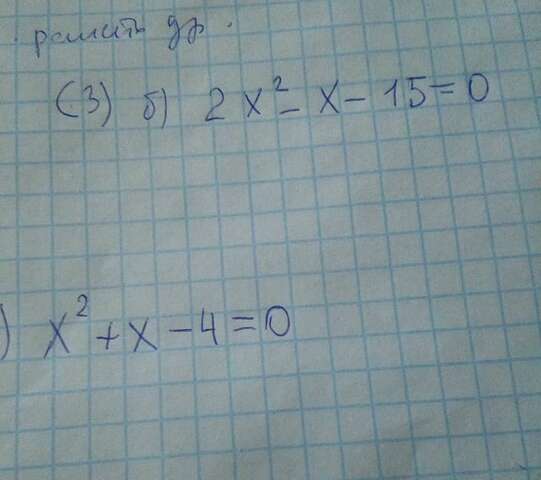 решить ур.
(3) б) 2x² - x - 15 = 0
) x² + x - 4 = 0